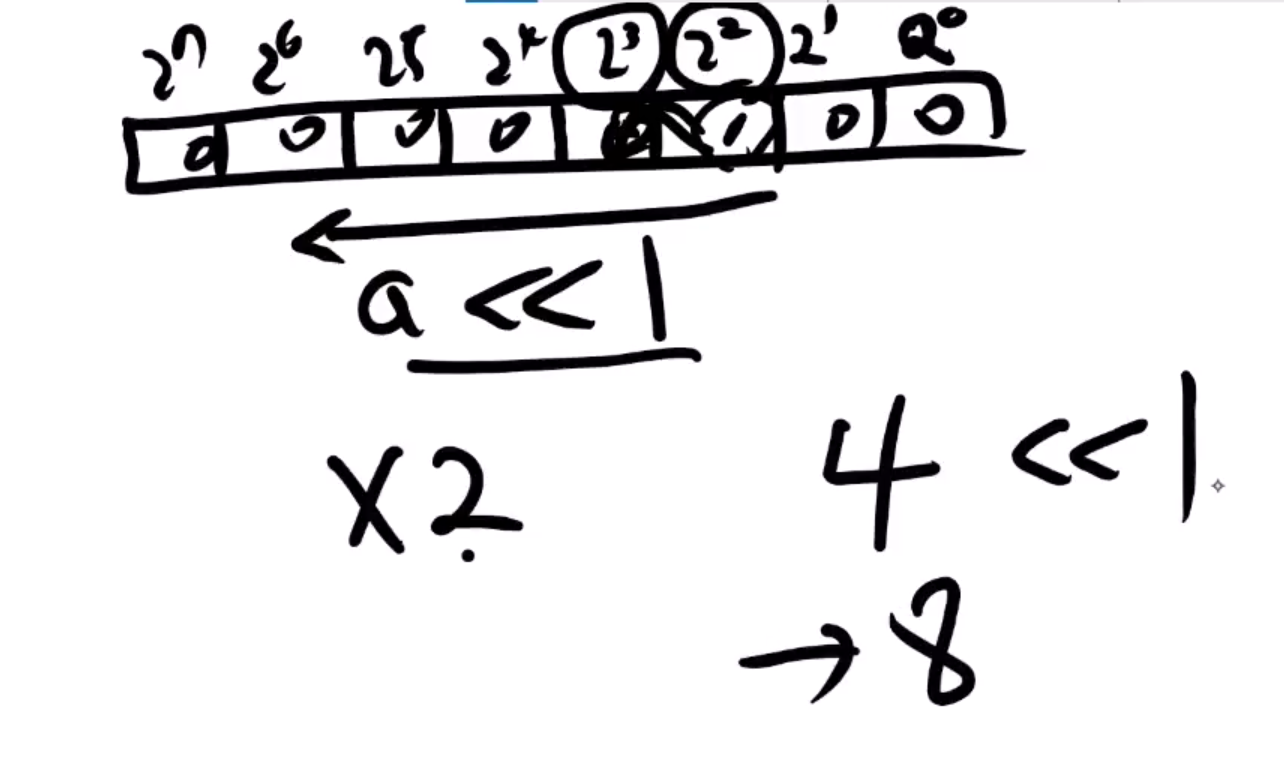 2⁷ 2⁶ 2⁵ 2⁴ 2³ 2² 2¹ 2⁰
0 0 0 0 1 0 0
a << 1
×2 4 << 1
→ 8